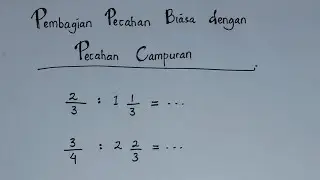 Pembagian Pecahan Biasa dengan
Pecahan Campuran
2/3 : 1 1/3 = ...
3/4 : 2 2/3 = ...